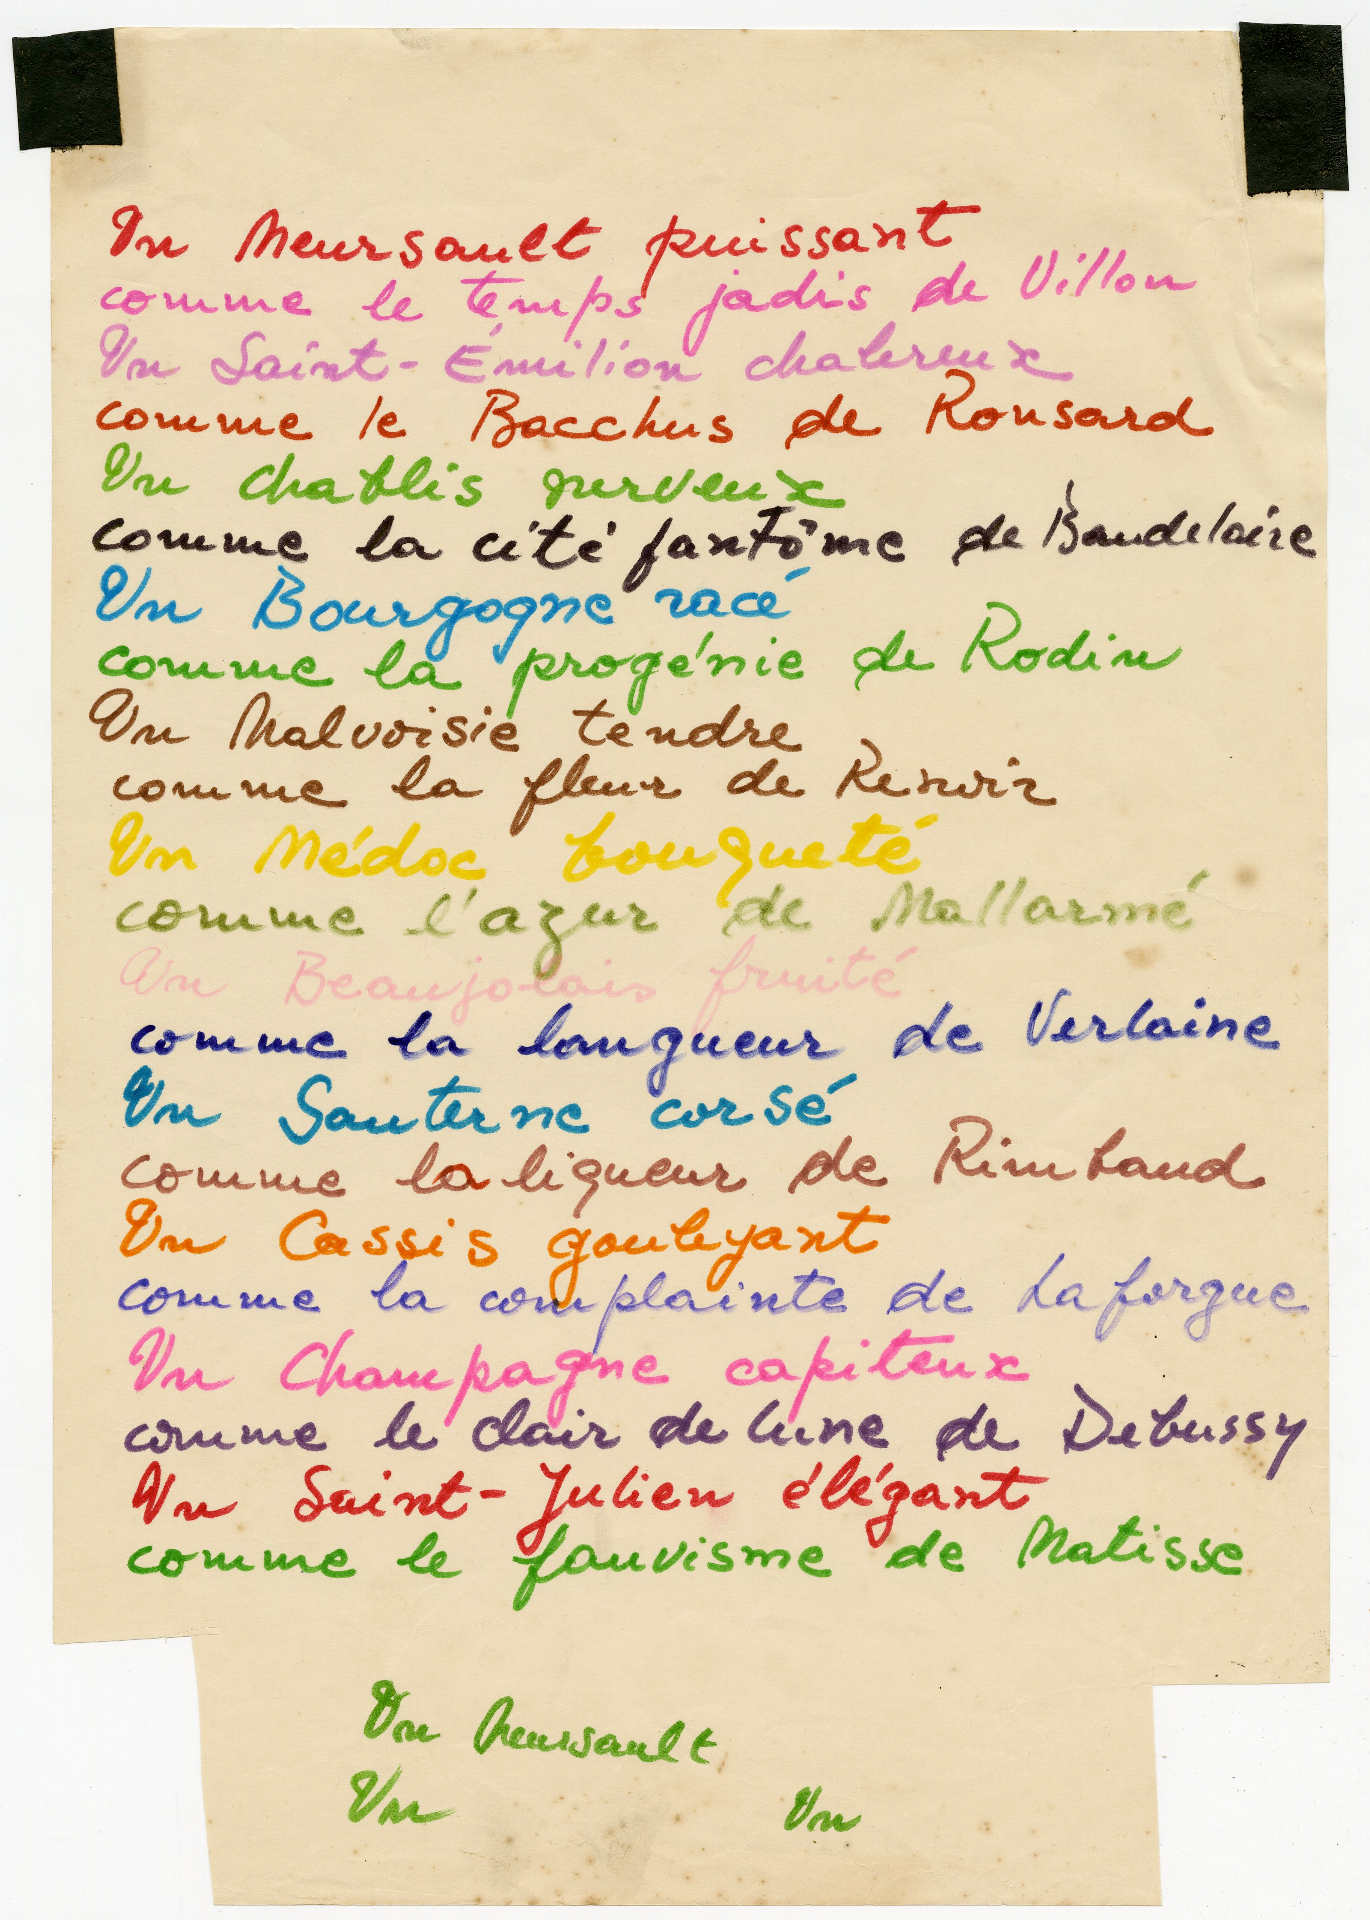 Un Meursault puissant
comme le temps jadis de Villon
Un Saint-Émilion chaleureux
comme le Bacchus de Ronsard
Un Chablis nerveux
comme la cité fantôme de Baudelaire
Un Bourgogne racé
comme la progénie de Rodin
Un Malvoisie tendre
comme la fleur de Renoir
Un Médoc bouqueté
comme l'azur de Mallarmé
Un Beaujolais fruité
comme la langueur de Verlaine
Un Sauterne corsé
comme la liqueur de Rimbaud
Un Cassis gouleyant
comme la complainte de Laforgue
Un Champagne capiteux
comme le clair de lune de Debussy
Un Saint-Julien élégant
comme le fauvisme de Matisse
Un Meursault
Un Un